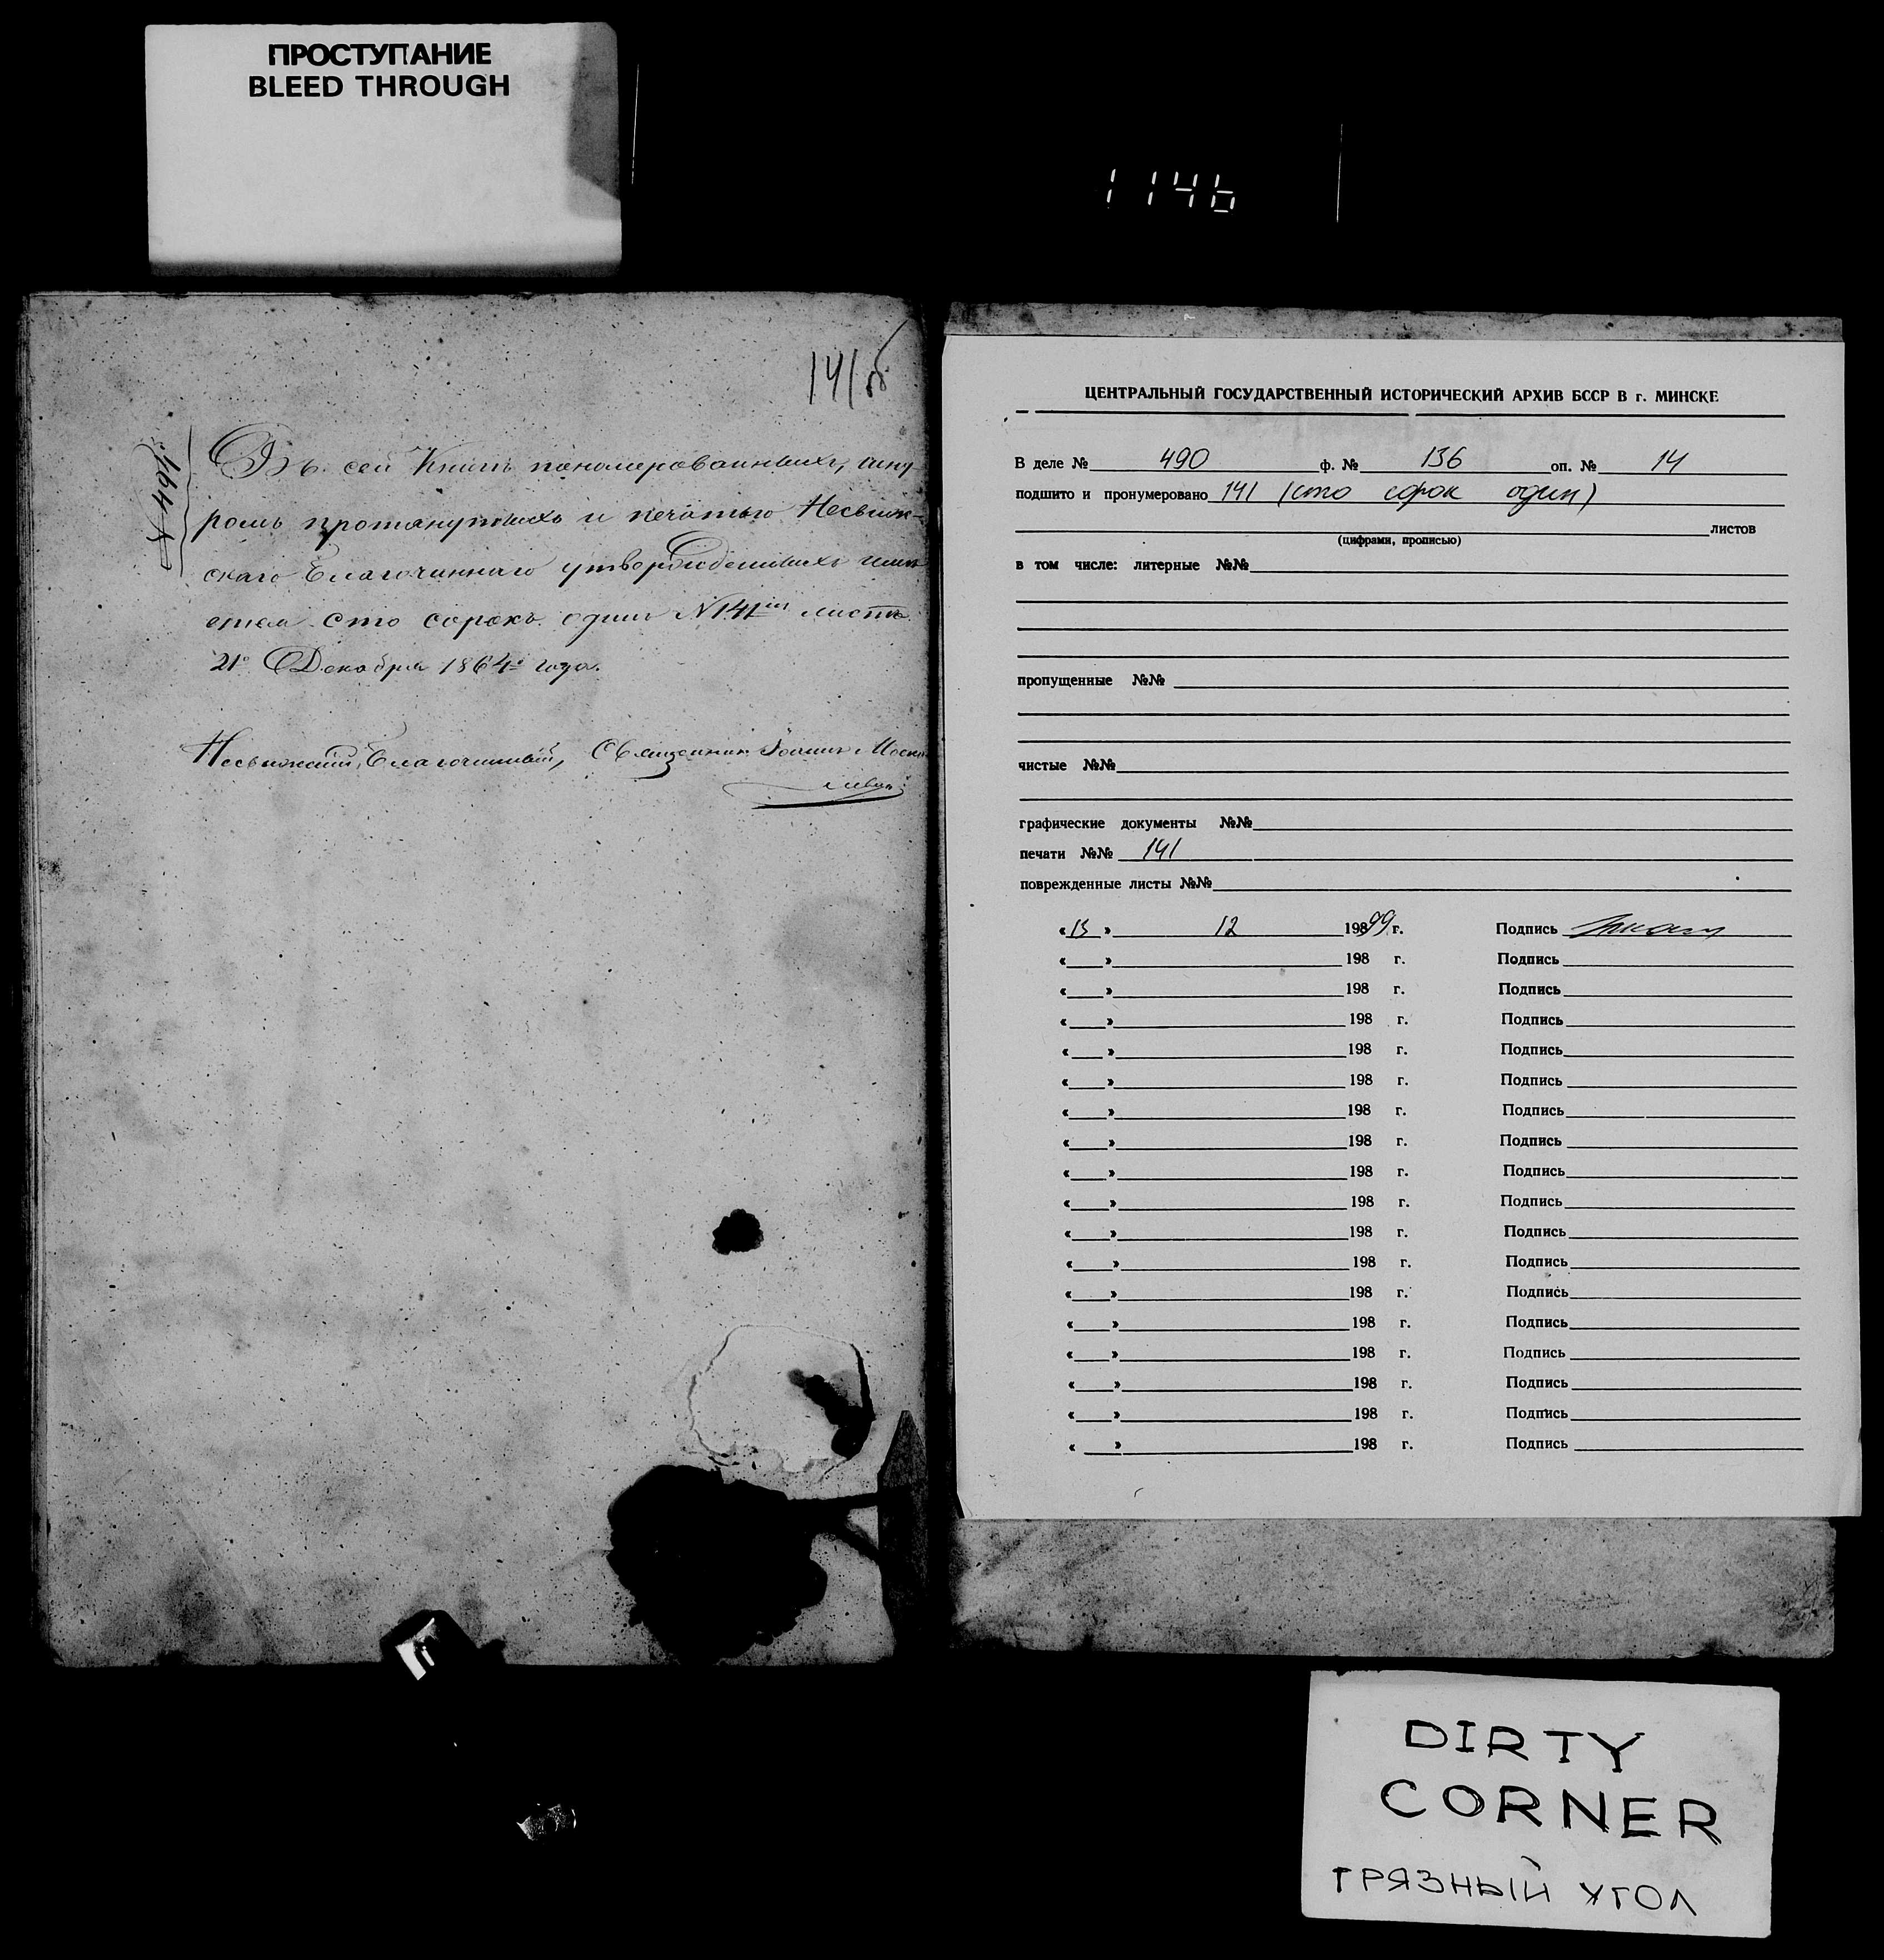 ПРОСТУПАНИЕ
BLEED THROUGH
1146
141об
Въ сей Книгѣ пономерованныхъ, шну
ромъ протянутыхъ и печатью Несвиж-
скаго Благочиннаго утвержденныхъ имѣ
ется сто сорокъ одинъ N 141 листъ
21º Декабря 1864º года.
Несвижскій Благочинный, Священникъ Іоаннъ
ЦЕНТРАЛЬНЫЙ ГОСУДАРСТВЕННЫЙ ИСТОРИЧЕСКИЙ АРХИВ БССР В г. МИНСКЕ
В деле № 490 ф. № 136 оп. № 14
подшито и пронумеровано 141 (сто сорок один)
листов
(цифрами, прописью)
в том числе: литерные №№
пропущенные №№
чистые №№
графические документы №№
печати №№ 141
поврежденные листы №№
« 13 » 12 19899 г. Подпись
« » 198 г. Подпись
« » 198 г. Подпись
« » 198 г. Подпись
« » 198 г. Подпись
« » 198 г. Подпись
« » 198 г. Подпись
« » 198 г. Подпись
« » 198 г. Подпись
« » 198 г. Подпись
« » 198 г. Подпись
« » 198 г. Подпись
« » 198 г. Подпись
« » 198 г. Подпись
« » 198 г. Подпись
« » 198 г. Подпись
« » 198 г. Подпись
« » 198 г. Подпись
DIRTY
CORNER
ГРЯЗНЫЙ УГОЛ